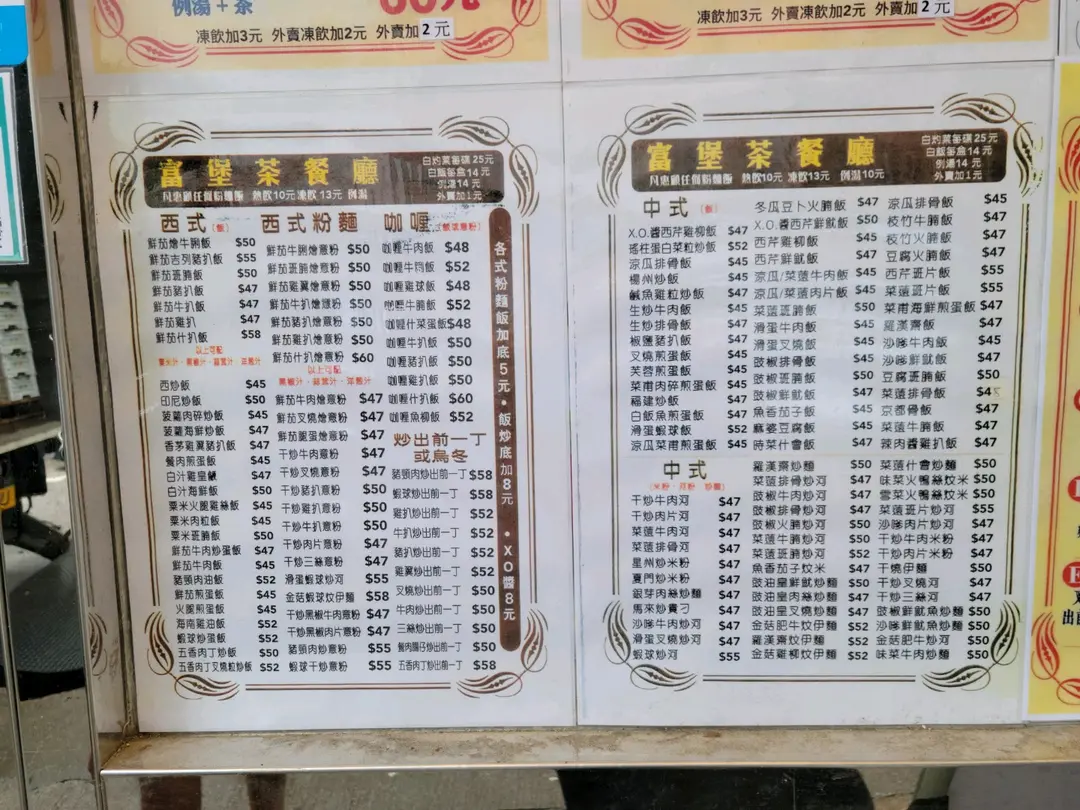 例湯+茶
凍飲加3元 外賣凍飲加2元 外賣加2元
凍飲加3元 外賣凍飲加2元 外賣加2元
富堡茶餐廳
凡惠顧任何粉麵飯 熱飲10元 凍飲13元 例湯
白灼菜每碟25元
白飯每盒14元
例湯14元
外賣加1元
西式(飯)
鮮茄燴牛脷飯 $50
鮮茄吉列豬扒飯 $55
鮮茄斑腩飯 $50
鮮茄豬扒飯 $47
鮮茄牛扒飯 $47
鮮茄雞扒 $47
鮮茄什扒飯 $58
以上可配
粟米汁·黑椒汁·蘑菇汁·洋葱汁
西炒飯 $45
印尼炒飯 $50
菠蘿肉碎炒飯 $45
菠蘿海鮮炒飯 $47
香茅雞翼豬扒飯 $47
餐肉煎蛋飯 $45
白汁雞皇飯 $47
白汁海鮮飯 $50
粟米火腿雞絲飯 $45
粟米肉粒飯 $45
粟米斑腩飯 $50
鮮茄牛肉炒蛋飯 $47
鮮茄牛肉飯 $45
豬頸肉油飯 $52
鮮茄煎蛋飯 $45
火腿煎蛋飯 $45
海南雞油飯 $52
蝦球炒蛋飯 $52
五香肉丁炒飯 $50
五香肉丁叉燒粒炒飯 $52
西式粉麵
鮮茄牛脷燴意粉 $50
鮮茄斑腩燴意粉 $50
鮮茄雞翼燴意粉 $50
鮮茄牛扒燴意粉 $50
鮮茄豬扒燴意粉 $50
鮮茄雞扒燴意粉 $50
鮮茄什扒燴意粉 $60
以上可配
黑椒汁·蘑菇汁·洋葱汁
鮮茄牛肉燴意粉 $47
鮮茄叉燒燴意粉 $47
鮮茄腿蛋燴意粉 $47
干炒牛肉意粉 $47
干炒叉燒意粉 $47
干炒豬扒意粉 $50
干炒雞扒意粉 $50
干炒牛扒意粉 $50
干炒肉片意粉 $47
干炒三絲意粉 $47
滑蛋蝦球炒河 $55
金菇蝦球炆伊麵 $58
干炒黑椒牛肉意粉 $47
干炒黑椒肉片意粉 $47
豬頸肉炒意粉 $55
蝦球干炒意粉 $55
咖喱
咖喱牛肉飯 $48
咖喱牛肉飯 $52
咖喱雞球飯 $48
咖喱牛腩飯 $52
咖喱什菜蛋飯 $48
咖喱牛扒飯 $50
咖喱豬扒飯 $50
咖喱雞扒飯 $50
咖喱什扒飯 $60
咖喱魚柳飯 $52
炒出前一丁
或烏冬
豬頸肉炒出前一丁 $58
蝦球炒出前一丁 $58
雞扒炒出前一丁 $52
牛扒炒出前一丁 $52
豬扒炒出前一丁 $52
雞翼炒出前一丁 $52
叉燒炒出前一丁 $50
牛肉炒出前一丁 $50
三絲炒出前一丁 $50
餐肉腸仔炒出前一丁 $50
五香肉丁炒出前一丁 $58
各式粉麵飯加底5元·飯炒底加8元·XO醬8元
富堡茶餐廳
凡惠顧任何粉麵飯 熱飲10元 凍飲13元 例湯10元
白灼菜每碟25元
白飯每盒14元
例湯14元
外賣加1元
中式(飯)
X.O.醬西芹雞柳飯 $47
瑤柱蛋白菜粒炒飯 $52
涼瓜排骨飯 $45
楊州炒飯 $45
鹹魚雞粒炒飯 $47
生炒牛肉飯 $45
生炒排骨飯 $47
椒鹽豬扒飯 $47
叉燒煎蛋飯 $45
芙蓉煎蛋飯 $45
菜甫肉碎煎蛋飯 $45
福建炒飯 $47
白飯魚煎蛋飯 $47
滑蛋蝦球飯 $52
涼瓜菜甫煎蛋飯 $45
冬瓜豆卜火腩飯 $47
X.O.醬西芹鮮魷飯 $50
西芹雞柳飯 $45
西芹鮮魷飯 $47
涼瓜/菜薳牛肉飯 $45
涼瓜/菜薳肉片飯 $45
菜薳斑腩飯 $50
滑蛋牛肉飯 $45
滑蛋叉燒飯 $45
豉椒排骨飯 $45
豉椒斑腩飯 $50
豉椒鮮魷飯 $47
魚香茄子飯 $45
麻婆豆腐飯 $45
時菜什會飯 $47
涼瓜排骨飯 $45
枝竹牛腩飯 $47
枝竹火腩飯 $47
豆腐火腩飯 $47
西芹斑片飯 $55
菜薳斑片飯 $55
菜甫海鮮煎蛋飯 $47
羅漢齋飯 $47
沙嗲牛肉飯 $45
沙嗲鮮魷飯 $47
豆腐斑腩飯 $50
菜薳排骨飯
京都骨飯 $47
菜薳牛腩飯 $47
辣肉醬雞扒飯 $47
中式
(米粉·河粉·炒麵)
干炒牛肉河 $47
干炒肉片河 $47
菜薳牛肉河 $47
菜薳排骨河 $47
星州炒米粉 $47
夏門炒米粉 $47
銀芽肉絲炒麵 $47
馬來炒貴刁 $47
沙嗲牛肉河 $47
滑蛋叉燒炒河 $47
蝦球炒河 $55
羅漢齋炒麵 $50
菜薳排骨炒河 $47
豉椒牛肉炒河 $47
豉椒排骨炒河 $47
豉椒火腩炒河 $50
菜薳牛腩炒河 $50
菜薳斑腩炒河 $52
魚香茄子炆米 $47
豉油皇鮮魷炒麵 $50
豉油皇肉絲炒麵 $47
豉油皇叉燒炒麵 $47
金菇肥牛炆伊麵 $52
羅漢齋炆伊麵 $52
金菇雞柳炆伊麵 $52
菜薳什會炒麵 $50
味菜火鴨絲炆米 $50
雪菜火鴨絲炆米 $50
菜薳斑片炒河 $55
沙嗲肉片炒河 $47
干炒牛肉米粉 $47
干炒肉片米粉 $47
干燒伊麵 $50
干炒叉燒河 $47
干炒三絲河 $47
豉椒鮮魷魚炒麵 $50
沙嗲鮮魷肉炒麵 $50
金菇肥牛炒河 $50
味菜牛肉炒麵 $50